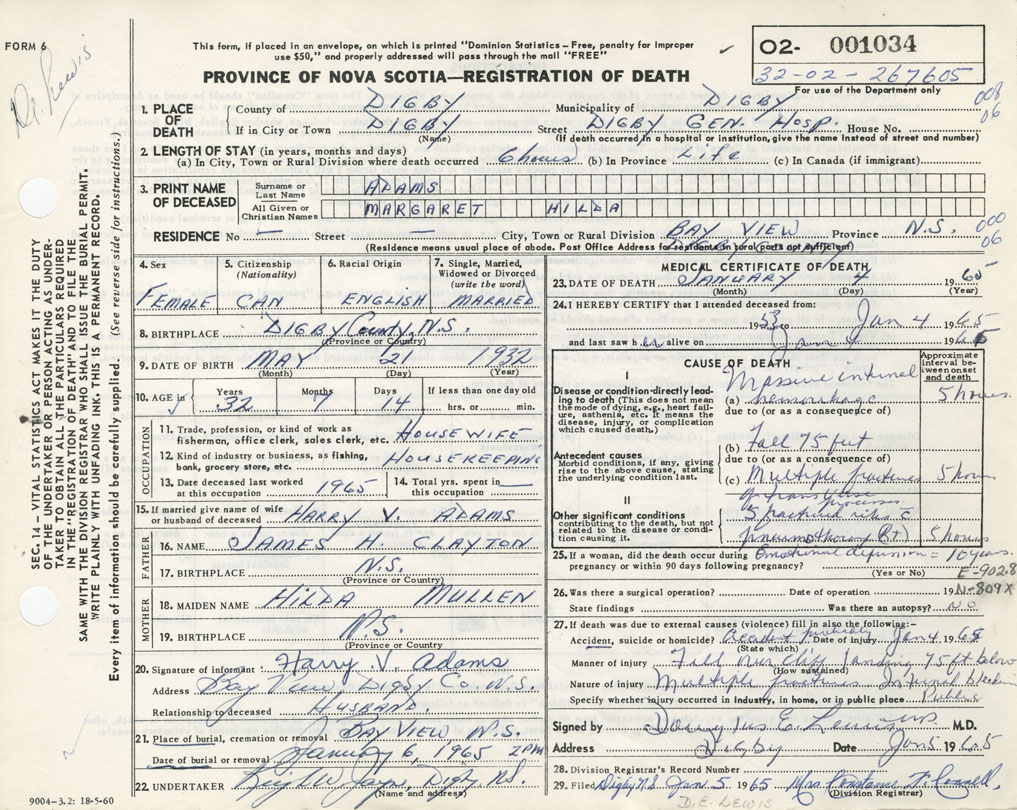 FORM 6
Dr. Lewis
This form, if placed in an envelope, on which is printed "Dominion Statistics – Free, penalty for improper
use $50," and properly addressed will pass through the mail "FREE"
PROVINCE OF NOVA SCOTIA—REGISTRATION OF DEATH
02- 001034
32-02-267605
For use of the Department only
008
06
1. PLACE OF DEATH
County of DIGBY Municipality of DIGBY
If in City or Town DIGBY Street DIGBY GEN. HOSP. House No.
(Name) (If death occurred in a hospital or institution, give the name instead of street and number)
2. LENGTH OF STAY (in years, months and days)
(a) In City, Town or Rural Division where death occurred 6 hours (b) In Province Life (c) In Canada (if immigrant)
3. PRINT NAME OF DECEASED
Surname or Last Name ADAMS
All Given or Christian Names MARGARET HILDA
RESIDENCE No — Street — City, Town or Rural Division BAY VIEW Province N.S.
00
06
(Residence means usual place of abode. Post Office Address for residents in rural parts not sufficient)
4. Sex FEMALE
5. Citizenship (Nationality) CAN
6. Racial Origin ENGLISH
7. Single, Married, Widowed or Divorced (write the word) MARRIED
8. BIRTHPLACE DIGBY County, N.S.
(Province or Country)
9. DATE OF BIRTH MAY 21 1932
(Month) (Day) (Year)
10. AGE in Years 32 Months 7 Days 14 If less than one day old hrs. or min.
OCCUPATION
11. Trade, profession, or kind of work as fisherman, office clerk, sales clerk, etc. HOUSEWIFE
12. Kind of industry or business, as fishing, bank, grocery store, etc. HOUSEKEEPING
13. Date deceased last worked at this occupation 1965
14. Total yrs. spent in this occupation —
15. If married give name of wife or husband of deceased HARRY V. ADAMS
FATHER
16. NAME JAMES H. CLAYTON
17. BIRTHPLACE N.S.
(Province or Country)
MOTHER
18. MAIDEN NAME HILDA MULLEN
19. BIRTHPLACE N.S.
(Province or Country)
20. Signature of informant Harry V. Adams
Address Bay View, Digby Co. N.S.
Relationship to deceased HUSBAND.
21. Place of burial, cremation or removal BAY VIEW N.S.
Date of burial or removal January 6, 1965 2PM
22. UNDERTAKER
(Name and address)
9004–3.2: 18-5-60
MEDICAL CERTIFICATE OF DEATH
23. DATE OF DEATH JANUARY 4 1965
(Month) (Day) (Year)
24. I HEREBY CERTIFY that I attended deceased from:
1953 to Jan 4 1965
and last saw her alive on Jan 4 1965
CAUSE OF DEATH
Approximate interval between onset and death
I
Disease or condition directly leading to death (This does not mean the mode of dying, e.g., heart failure, asthenia, etc. It means the disease, injury, or complication which caused death.)
(a) Massive internal hemorrhage 5 hours
due to (or as a consequence of)
Antecedent causes
Morbid conditions, if any, giving rise to the above cause, stating the underlying condition last.
(b) Fall 75 feet
due to (or as a consequence of)
(c) Multiple fractures 5 hours
of transverse processes.
II
Other significant conditions
contributing to the death, but not related to the disease or condition causing it.
5 fractured ribs c
pneumothorax (RT) 5 hours
Emotional depression = 10 years.
25. If a woman, did the death occur during pregnancy or within 90 days following pregnancy?
(Yes or No)
E-902.8
N-809X
26. Was there a surgical operation? Date of operation 19
State findings Was there an autopsy? No
27. If death was due to external causes (violence) fill in also the following:–
Accident, suicide or homicide? Accident probably Date of injury Jan 4 1965
(State which)
Manner of injury Fell over cliff landing 75 ft below
(How sustained)
Nature of injury Multiple fractures Internal bleeding
Specify whether injury occurred in industry, in home, or in public place Public
Signed by Douglas E Lewis M.D.
Address Digby Date Jan 5 1965
28. Division Registrar's Record Number
29. Filed Digby N.S Jan. 5 1965 Mrs. Constance
(Division Registrar)
D.E. LEWIS
SEC. 14 – VITAL STATISTICS ACT MAKES IT THE DUTY
OF THE UNDERTAKER OR PERSON ACTING AS UNDER-
TAKER TO OBTAIN ALL THE PARTICULARS REQUIRED
IN THE "REGISTRATION OF DEATH" AND TO FILE THE
SAME WITH THE DIVISION REGISTRAR WHO SHALL ISSUE THE BURIAL PERMIT.
WRITE PLAINLY WITH UNFADING INK. THIS IS A PERMANENT RECORD.
Every item of information should be carefully supplied. (See reverse side for instructions.)